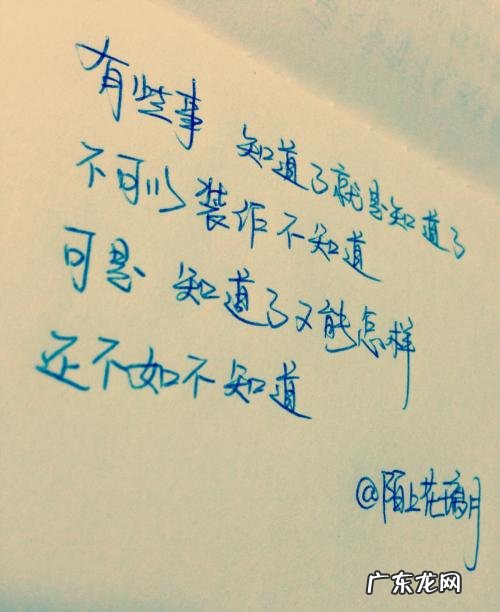 有些事 知道了就是知道了
不可以装作不知道
可是 知道了又能怎样
还不如不知道
@陌上花璃月
广东龙网